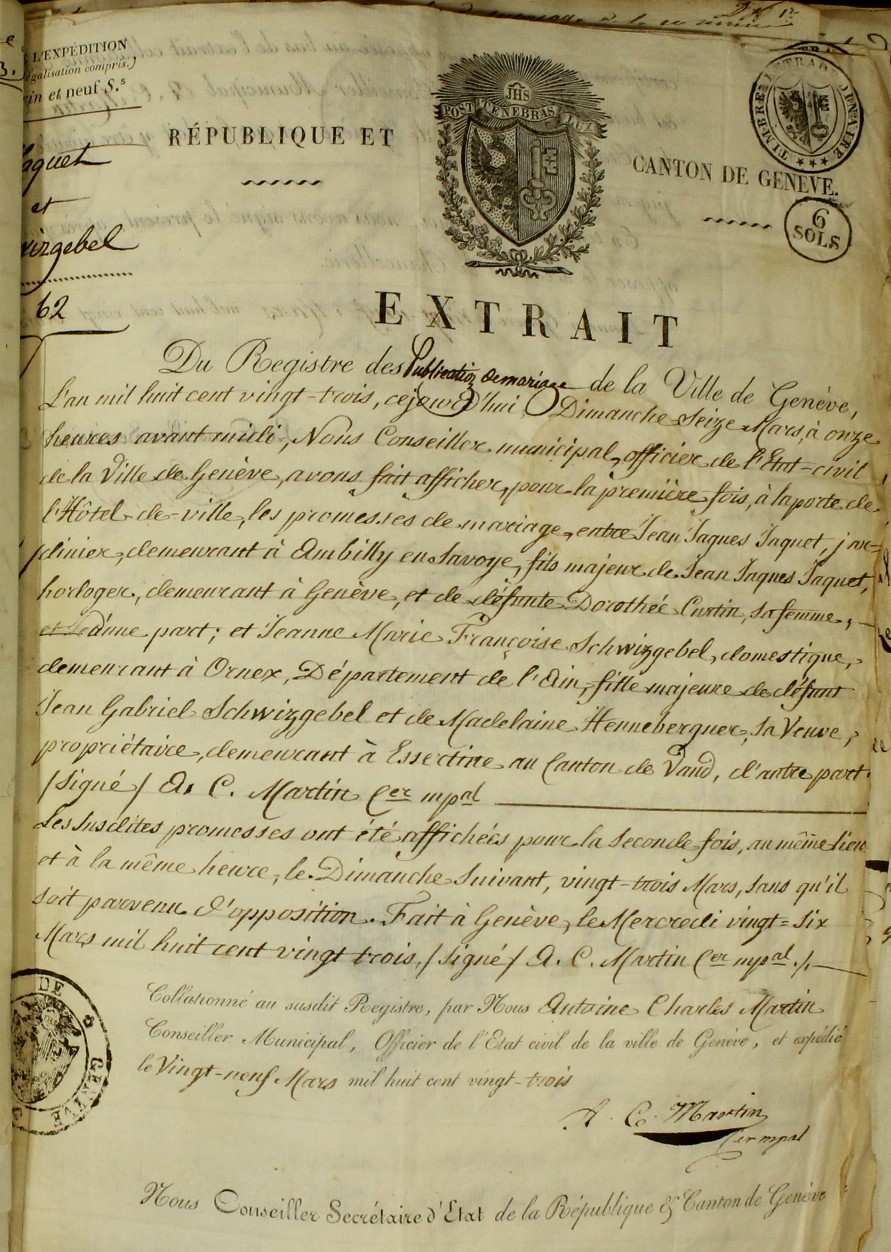 L'EXPÉDITION
(légalisation compris.)
et neuf S.s
Jaquet
et
Schwizgebel
62
RÉPUBLIQUE ET
JHS
POST TENEBRAS LUX
CANTON DE GENÈVE.
6
SOLS
EXTRAIT
Du Registre des Publication de mariage de la Ville de Genève,
L'an mil huit cent vingt-trois, cejourd'hui Dimanche Seize Mars, à onze
heures avant midi, Nous Conseiller municipal, officier de l'Etat-civil
de la Ville de Genève, avons fait afficher, pour la première fois, à la porte de
l'Hôtel-de-ville, les promesses de mariage, entre Jean Jaques Jaquet, jar-
dinier, demeurant à Ambilly en Savoye, fils majeur de Jean Jaques Jaquet,
horloger, demeurant à Genève, et de défunte Dorothée Curtin, sa femme,
d'une part; et Jeanne Marie Françoise Schwizgebel, domestique,
demeurant à Ornex, Département de l'Ain, fille majeure de défunt
Jean Gabriel Schwizgebel et de Madelaine Henneberguer, sa Veuve,
propriétaire, demeurant à Essertine au Canton de Vaud, d'autre part.
/Signé/ A. C. Martin Cer mpal
Les susdites promesses ont été affichées pour la seconde fois, au même lieu
et à la même heure, le Dimanche suivant, vingt-trois Mars, sans qu'il
soit parvenu d'opposition. Fait à Genève, le Mercredi vingt-six
Mars mil huit cent vingt trois. /Signé/ A. C. Martin Cer mpal ./.
Collationné au susdit Registre, par Nous Antoine Charles Martin
Conseiller Municipal, Officier de l'Etat civil de la ville de Genève, et expédié
le Vingt-neuf Mars mil huit cent vingt-trois
A. C. Martin
Cer mpal
DE GENEVE
Nous Conseiller Secrétaire d'Etat de la République & Canton de Genève